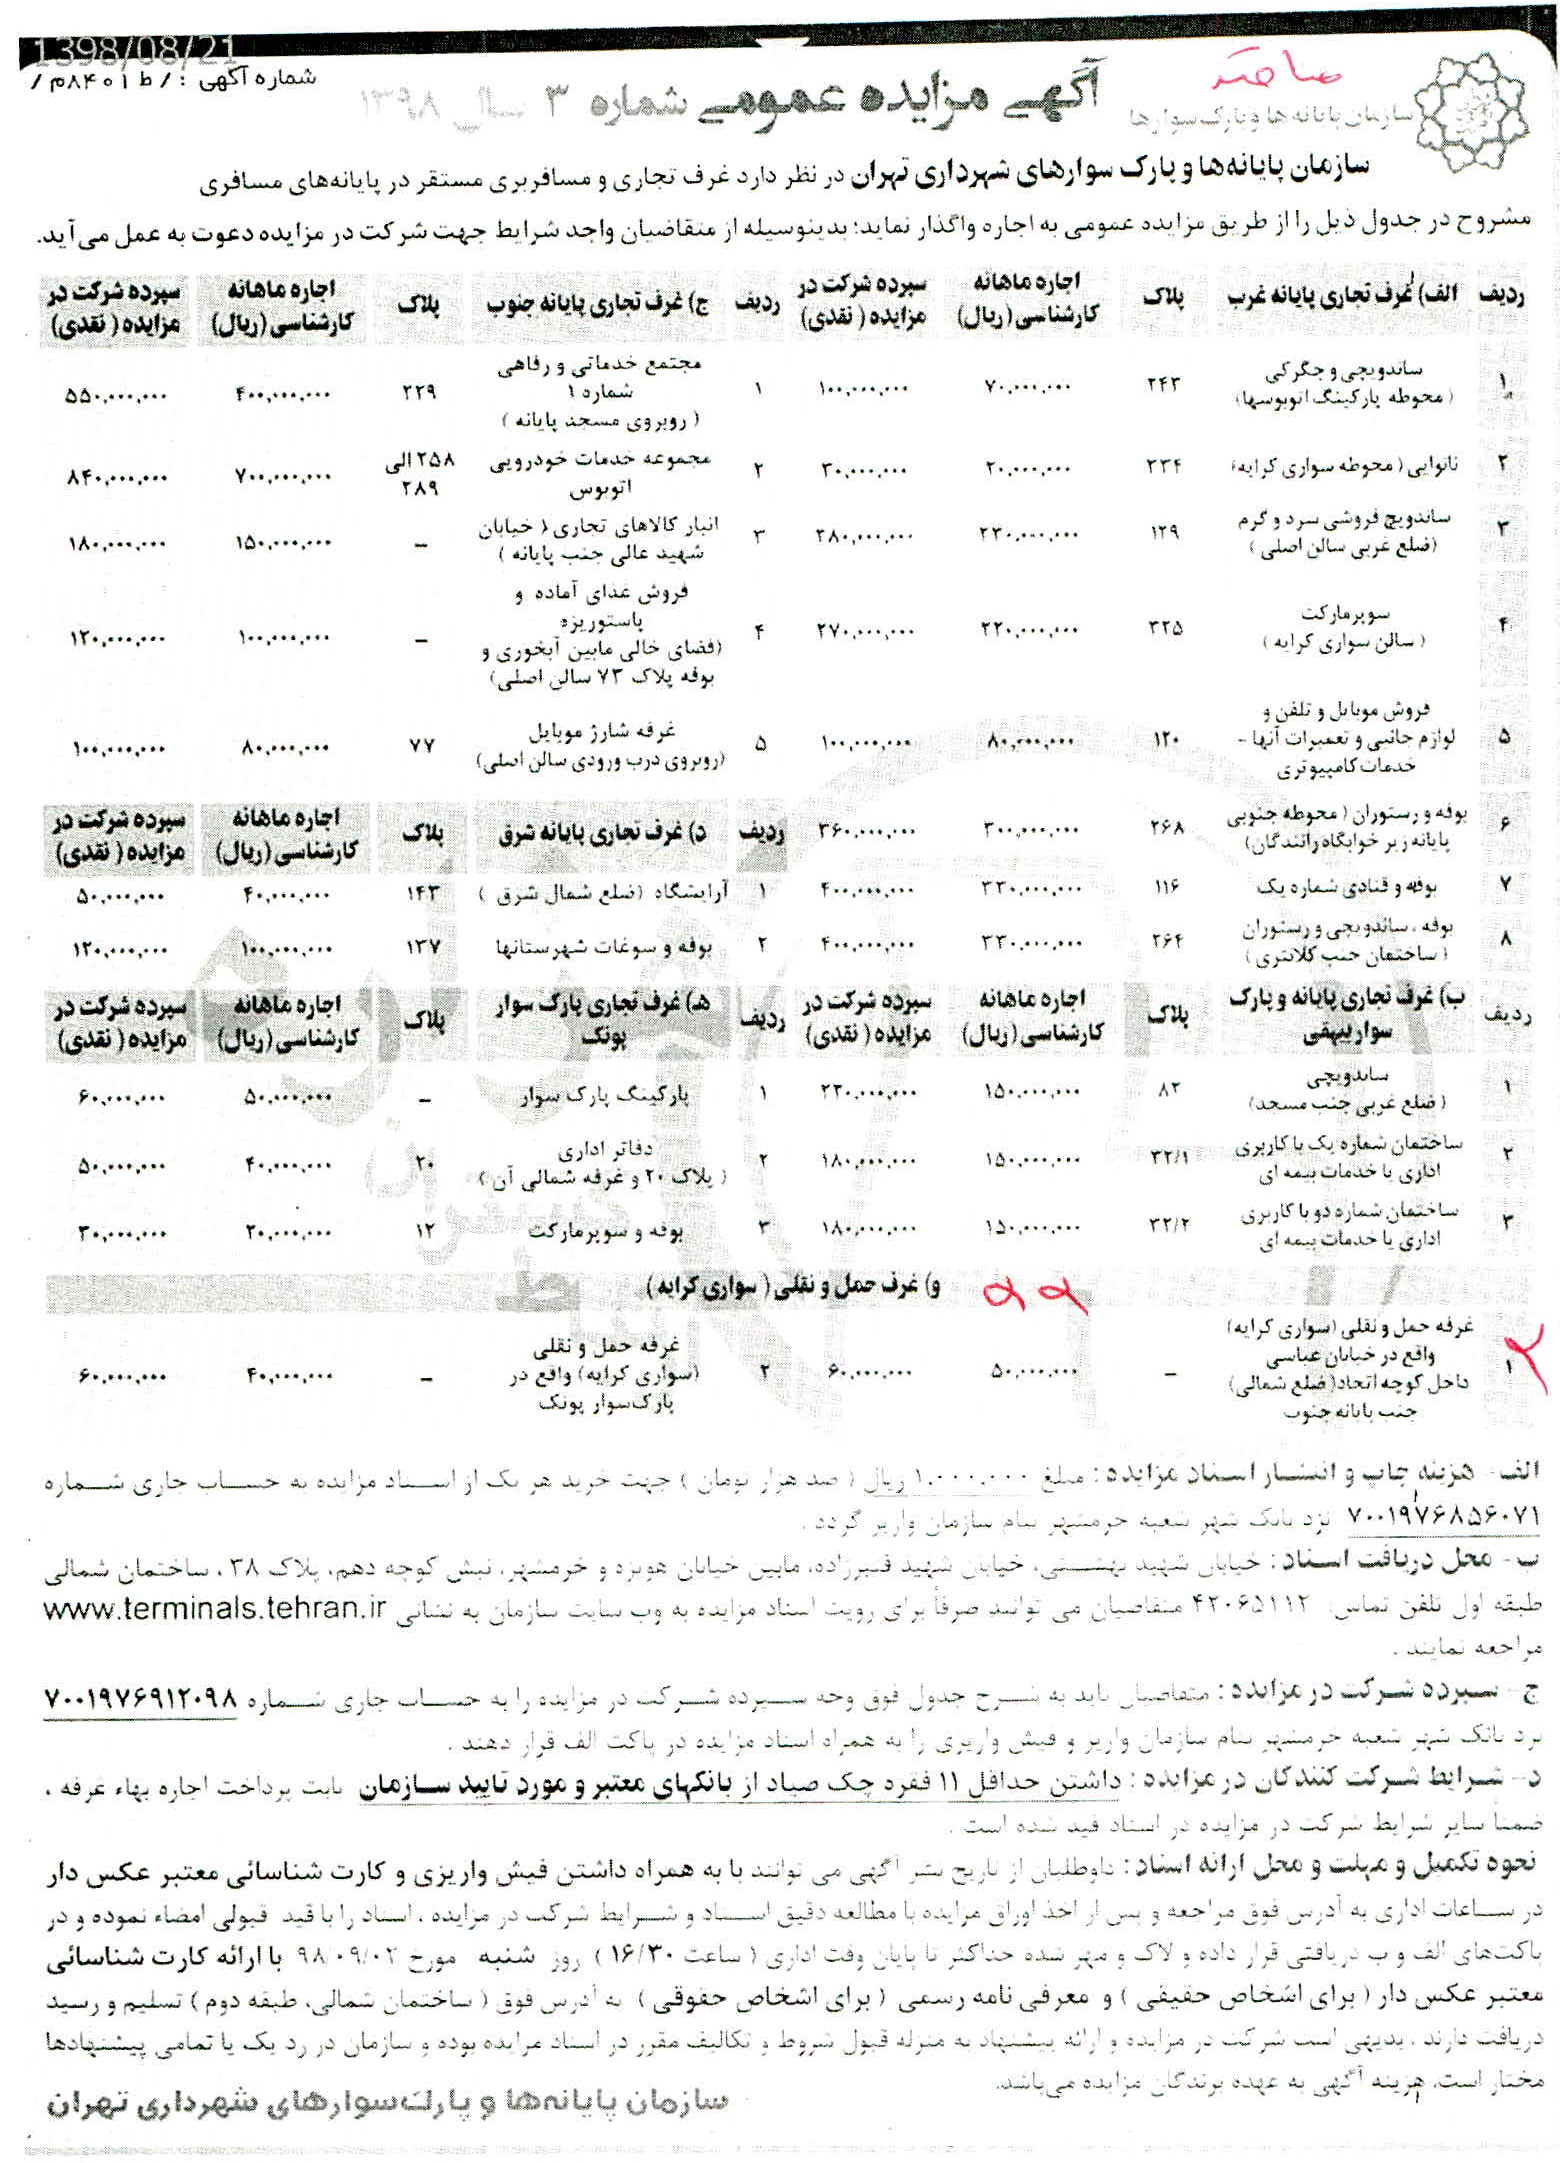 1398/08/21
شماره آگهی : / ط ۸۴۰۱م /
سازمان پایانه ها و پارک سوارها
آگهی مزایده عمومی شماره ۳ سال ۱۳۹۸
سازمان پایانه‌ها و پارک سوارهای شهرداری تهران در نظر دارد غرف تجاری و مسافربری مستقر در پایانه‌های مسافری
مشروح در جدول ذیل را از طریق مزایده عمومی به اجاره واگذار نماید؛ بدینوسیله از متقاضیان واجد شرایط جهت شرکت در مزایده دعوت به عمل می‌آید.
ردیف الف) غرف تجاری پایانه غرب پلاک اجاره ماهانه کارشناسی (ریال) سپرده شرکت در مزایده ( نقدی)
۱ ساندویچی و جگرکی ( محوطه پارکینگ اتوبوسها) ۲۴۳ ۷۰,۰۰۰,۰۰۰ ۱۰۰,۰۰۰,۰۰۰
۲ نانوایی ( محوطه سواری کرایه) ۲۳۴ ۲۰,۰۰۰,۰۰۰ ۳۰,۰۰۰,۰۰۰
۳ ساندویچ فروشی سرد و گرم (ضلع غربی سالن اصلی ) ۱۲۹ ۲۳۰,۰۰۰,۰۰۰ ۲۸۰,۰۰۰,۰۰۰
۴ سوپرمارکت ( سالن سواری کرایه ) ۳۲۵ ۲۲۰,۰۰۰,۰۰۰ ۲۷۰,۰۰۰,۰۰۰
۵ فروش موبایل و تلفن و لوازم جانبی و تعمیرات آنها - خدمات کامپیوتری ۱۲۰ ۸۰,۰۰۰,۰۰۰ ۱۰۰,۰۰۰,۰۰۰
۶ بوفه و رستوران ( محوطه جنوبی پایانه زیر خوابگاه رانندگان) ۲۶۸ ۳۰۰,۰۰۰,۰۰۰ ۳۶۰,۰۰۰,۰۰۰
۷ بوفه و قنادی شماره یک ۱۱۶ ۳۳۰,۰۰۰,۰۰۰ ۴۰۰,۰۰۰,۰۰۰
۸ بوفه ، ساندویچی و رستوران ( ساختمان جنب کلانتری ) ۲۶۴ ۳۳۰,۰۰۰,۰۰۰ ۴۰۰,۰۰۰,۰۰۰
ردیف ب) غرف تجاری پایانه و پارک سوار بیهقی پلاک اجاره ماهانه کارشناسی (ریال) سپرده شرکت در مزایده ( نقدی)
۱ ساندویچی ( ضلع غربی جنب مسجد) ۸۲ ۱۵۰,۰۰۰,۰۰۰ ۲۲۰,۰۰۰,۰۰۰
۲ ساختمان شماره یک با کاربری اداری یا خدمات بیمه ای ۳۲/۱ ۱۵۰,۰۰۰,۰۰۰ ۱۸۰,۰۰۰,۰۰۰
۳ ساختمان شماره دو با کاربری اداری یا خدمات بیمه ای ۳۲/۲ ۱۵۰,۰۰۰,۰۰۰ ۱۸۰,۰۰۰,۰۰۰
ردیف ج) غرف تجاری پایانه جنوب پلاک اجاره ماهانه کارشناسی (ریال) سپرده شرکت در مزایده ( نقدی)
۱ مجتمع خدماتی و رفاهی شماره ۱ ( روبروی مسجد پایانه ) ۲۲۹ ۴۰۰,۰۰۰,۰۰۰ ۵۵۰,۰۰۰,۰۰۰
۲ مجموعه خدمات خودرویی اتوبوس ۲۵۸ الی ۲۸۹ ۷۰۰,۰۰۰,۰۰۰ ۸۴۰,۰۰۰,۰۰۰
۳ انبار کالاهای تجاری ( خیابان شهید عالی جنب پایانه ) – ۱۵۰,۰۰۰,۰۰۰ ۱۸۰,۰۰۰,۰۰۰
۴ فروش غذای آماده و پاستوریزه (فضای خالی مابین آبخوری و بوفه پلاک ۷۳ سالن اصلی) – ۱۰۰,۰۰۰,۰۰۰ ۱۲۰,۰۰۰,۰۰۰
۵ غرفه شارژ موبایل (روبروی درب ورودی سالن اصلی) ۷۷ ۸۰,۰۰۰,۰۰۰ ۱۰۰,۰۰۰,۰۰۰
ردیف د) غرف تجاری پایانه شرق پلاک اجاره ماهانه کارشناسی (ریال) سپرده شرکت در مزایده ( نقدی)
۱ آرایشگاه (ضلع شمال شرق ) ۱۴۳ ۴۰,۰۰۰,۰۰۰ ۵۰,۰۰۰,۰۰۰
۲ بوفه و سوغات شهرستانها ۱۳۷ ۱۰۰,۰۰۰,۰۰۰ ۱۲۰,۰۰۰,۰۰۰
ردیف هـ) غرف تجاری پارک سوار پونک پلاک اجاره ماهانه کارشناسی (ریال) سپرده شرکت در مزایده ( نقدی)
۱ پارکینگ پارک سوار – ۵۰,۰۰۰,۰۰۰ ۶۰,۰۰۰,۰۰۰
۲ دفاتر اداری ( پلاک ۲۰ و غرفه شمالی آن ) ۲۰ ۴۰,۰۰۰,۰۰۰ ۵۰,۰۰۰,۰۰۰
۳ بوفه و سوپرمارکت ۱۲ ۲۰,۰۰۰,۰۰۰ ۳۰,۰۰۰,۰۰۰
و) غرف حمل و نقلی ( سواری کرایه )
۱ غرفه حمل و نقلی (سواری کرایه) واقع در خیابان عباسی داخل کوچه اتحاد( ضلع شمالی) جنب پایانه جنوب – ۵۰,۰۰۰,۰۰۰ ۶۰,۰۰۰,۰۰۰
۲ غرفه حمل و نقلی (سواری کرایه) واقع در پارک‌سوار پونک – ۴۰,۰۰۰,۰۰۰ ۶۰,۰۰۰,۰۰۰
الف- هزینه چاپ و انتشار اسناد مزایده : مبلغ ۱.۰۰۰.۰۰۰ ریال ( صد هزار تومان ) جهت خرید هر یک از اسناد مزایده به حساب جاری شماره
۷۰۰۱۹۷۶۸۵۶۰۷۱ نزد بانک شهر شعبه خرمشهر بنام سازمان واریز گردد .
ب- محل دریافت اسناد : خیابان شهید بهشتی، خیابان شهید قنبرزاده، مابین خیابان هویزه و خرمشهر، نبش کوچه دهم، پلاک ۳۸ ، ساختمان شمالی
طبقه اول تلفن تماس: ۴۲۰۶۵۱۱۲ متقاضیان می توانند صرفاً برای رویت اسناد مزایده به وب سایت سازمان به نشانی www.terminals.tehran.ir
مراجعه نمایند .
ج- سپرده شرکت در مزایده : متقاضیان باید به شرح جدول فوق وجه سپرده شرکت در مزایده را به حساب جاری شماره ۷۰۰۱۹۷۶۹۱۲۰۹۸
نزد بانک شهر شعبه خرمشهر بنام سازمان واریز و فیش واریزی را به همراه اسناد مزایده در پاکت الف قرار دهند .
د- شرایط شرکت کنندگان در مزایده : داشتن حداقل ۱۱ فقره چک صیاد از بانکهای معتبر و مورد تایید سازمان بابت پرداخت اجاره بهاء غرفه ،
ضمناً سایر شرایط شرکت در مزایده در اسناد قید شده است .
نحوه تکمیل و مهلت و محل ارائه اسناد : داوطلبان از تاریخ نشر آگهی می توانند با به همراه داشتن فیش واریزی و کارت شناسائی معتبر عکس دار
در ساعات اداری به آدرس فوق مراجعه و پس از اخذ اوراق مزایده با مطالعه دقیق اسناد و شرایط شرکت در مزایده ، اسناد را با قید قبولی امضاء نموده و در
پاکت‌های الف و ب دریافتی قرار داده و لاک و مهر شده حداکثر تا پایان وقت اداری ( ساعت ۱۶/۳۰ ) روز شنبه مورخ ۹۸/۰۹/۰۲ با ارائه کارت شناسائی
معتبر عکس دار ( برای اشخاص حقیقی ) و معرفی نامه رسمی ( برای اشخاص حقوقی ) به آدرس فوق ( ساختمان شمالی، طبقه دوم ) تسلیم و رسید
دریافت دارند . بدیهی است شرکت در مزایده و ارائه پیشنهاد به منزله قبول شروط و تکالیف مقرر در اسناد مزایده بوده و سازمان در رد یک یا تمامی پیشنهادها
مختار است. هزینه آگهی به عهده برندگان مزایده می‌باشد.
سازمان پایانه‌ها و پارک‌سوارهای شهرداری تهران